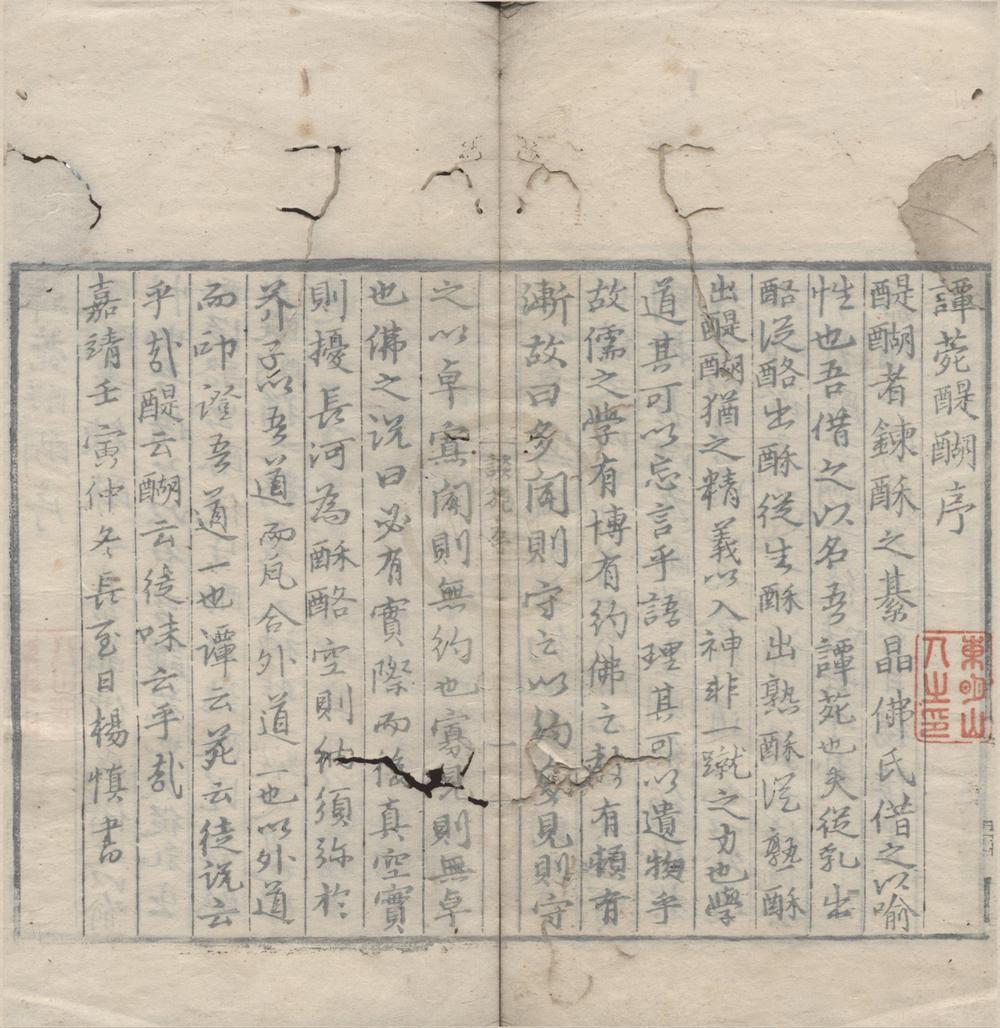 譚菀醍醐序
醍醐者鍊酥之綦晶佛氏借之以喻
性也吾借之以名吾譚菀也夫從乳出
酪從酪出酥從生酥出熟酥從熟酥
出醍醐猶之精義以入神非一蹴之力也學
道其可以忘言乎語理其可以遺物乎
故儒之學有博有約佛之教有頓有
漸故曰多聞則守之以約多見則守
之以卓寡聞則無約也寡見則無卓
也佛之说曰必有實際而後真空實
則擾長河為酥酪空則納須弥於
芥子以吾道而瓦合外道一也以外道
而印證吾道一也譚云菀云徒说云
乎哉醍云醐云徒味云乎哉
嘉靖壬寅仲冬長至日楊慎書
談菀序
一
東明山
人之印